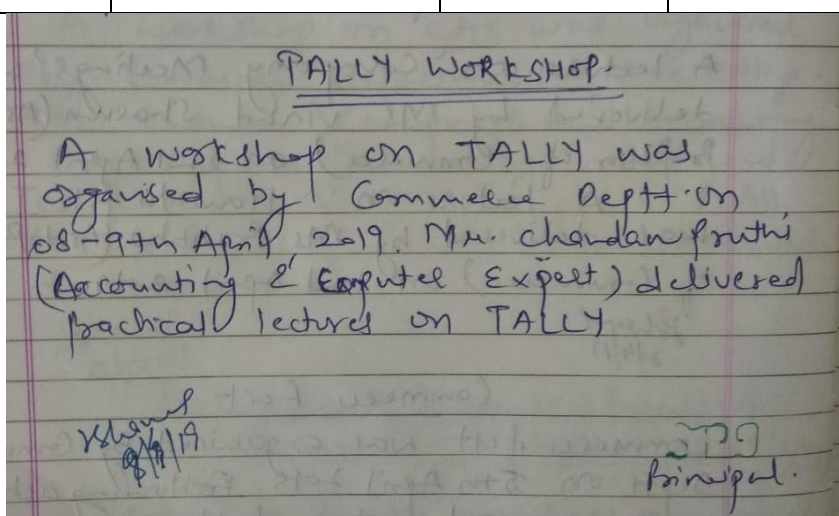 TALLY WORKSHOP.
A workshop on TALLY was
organised by Commerce Deptt. on
08-9th April, 2019. Mr. Chandan Pruthi
(Accounting & Computer Expert) delivered
practical lectures on TALLY
9/4/19
Principal.